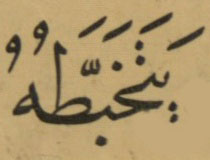 يَتَخَبَّطُهُ